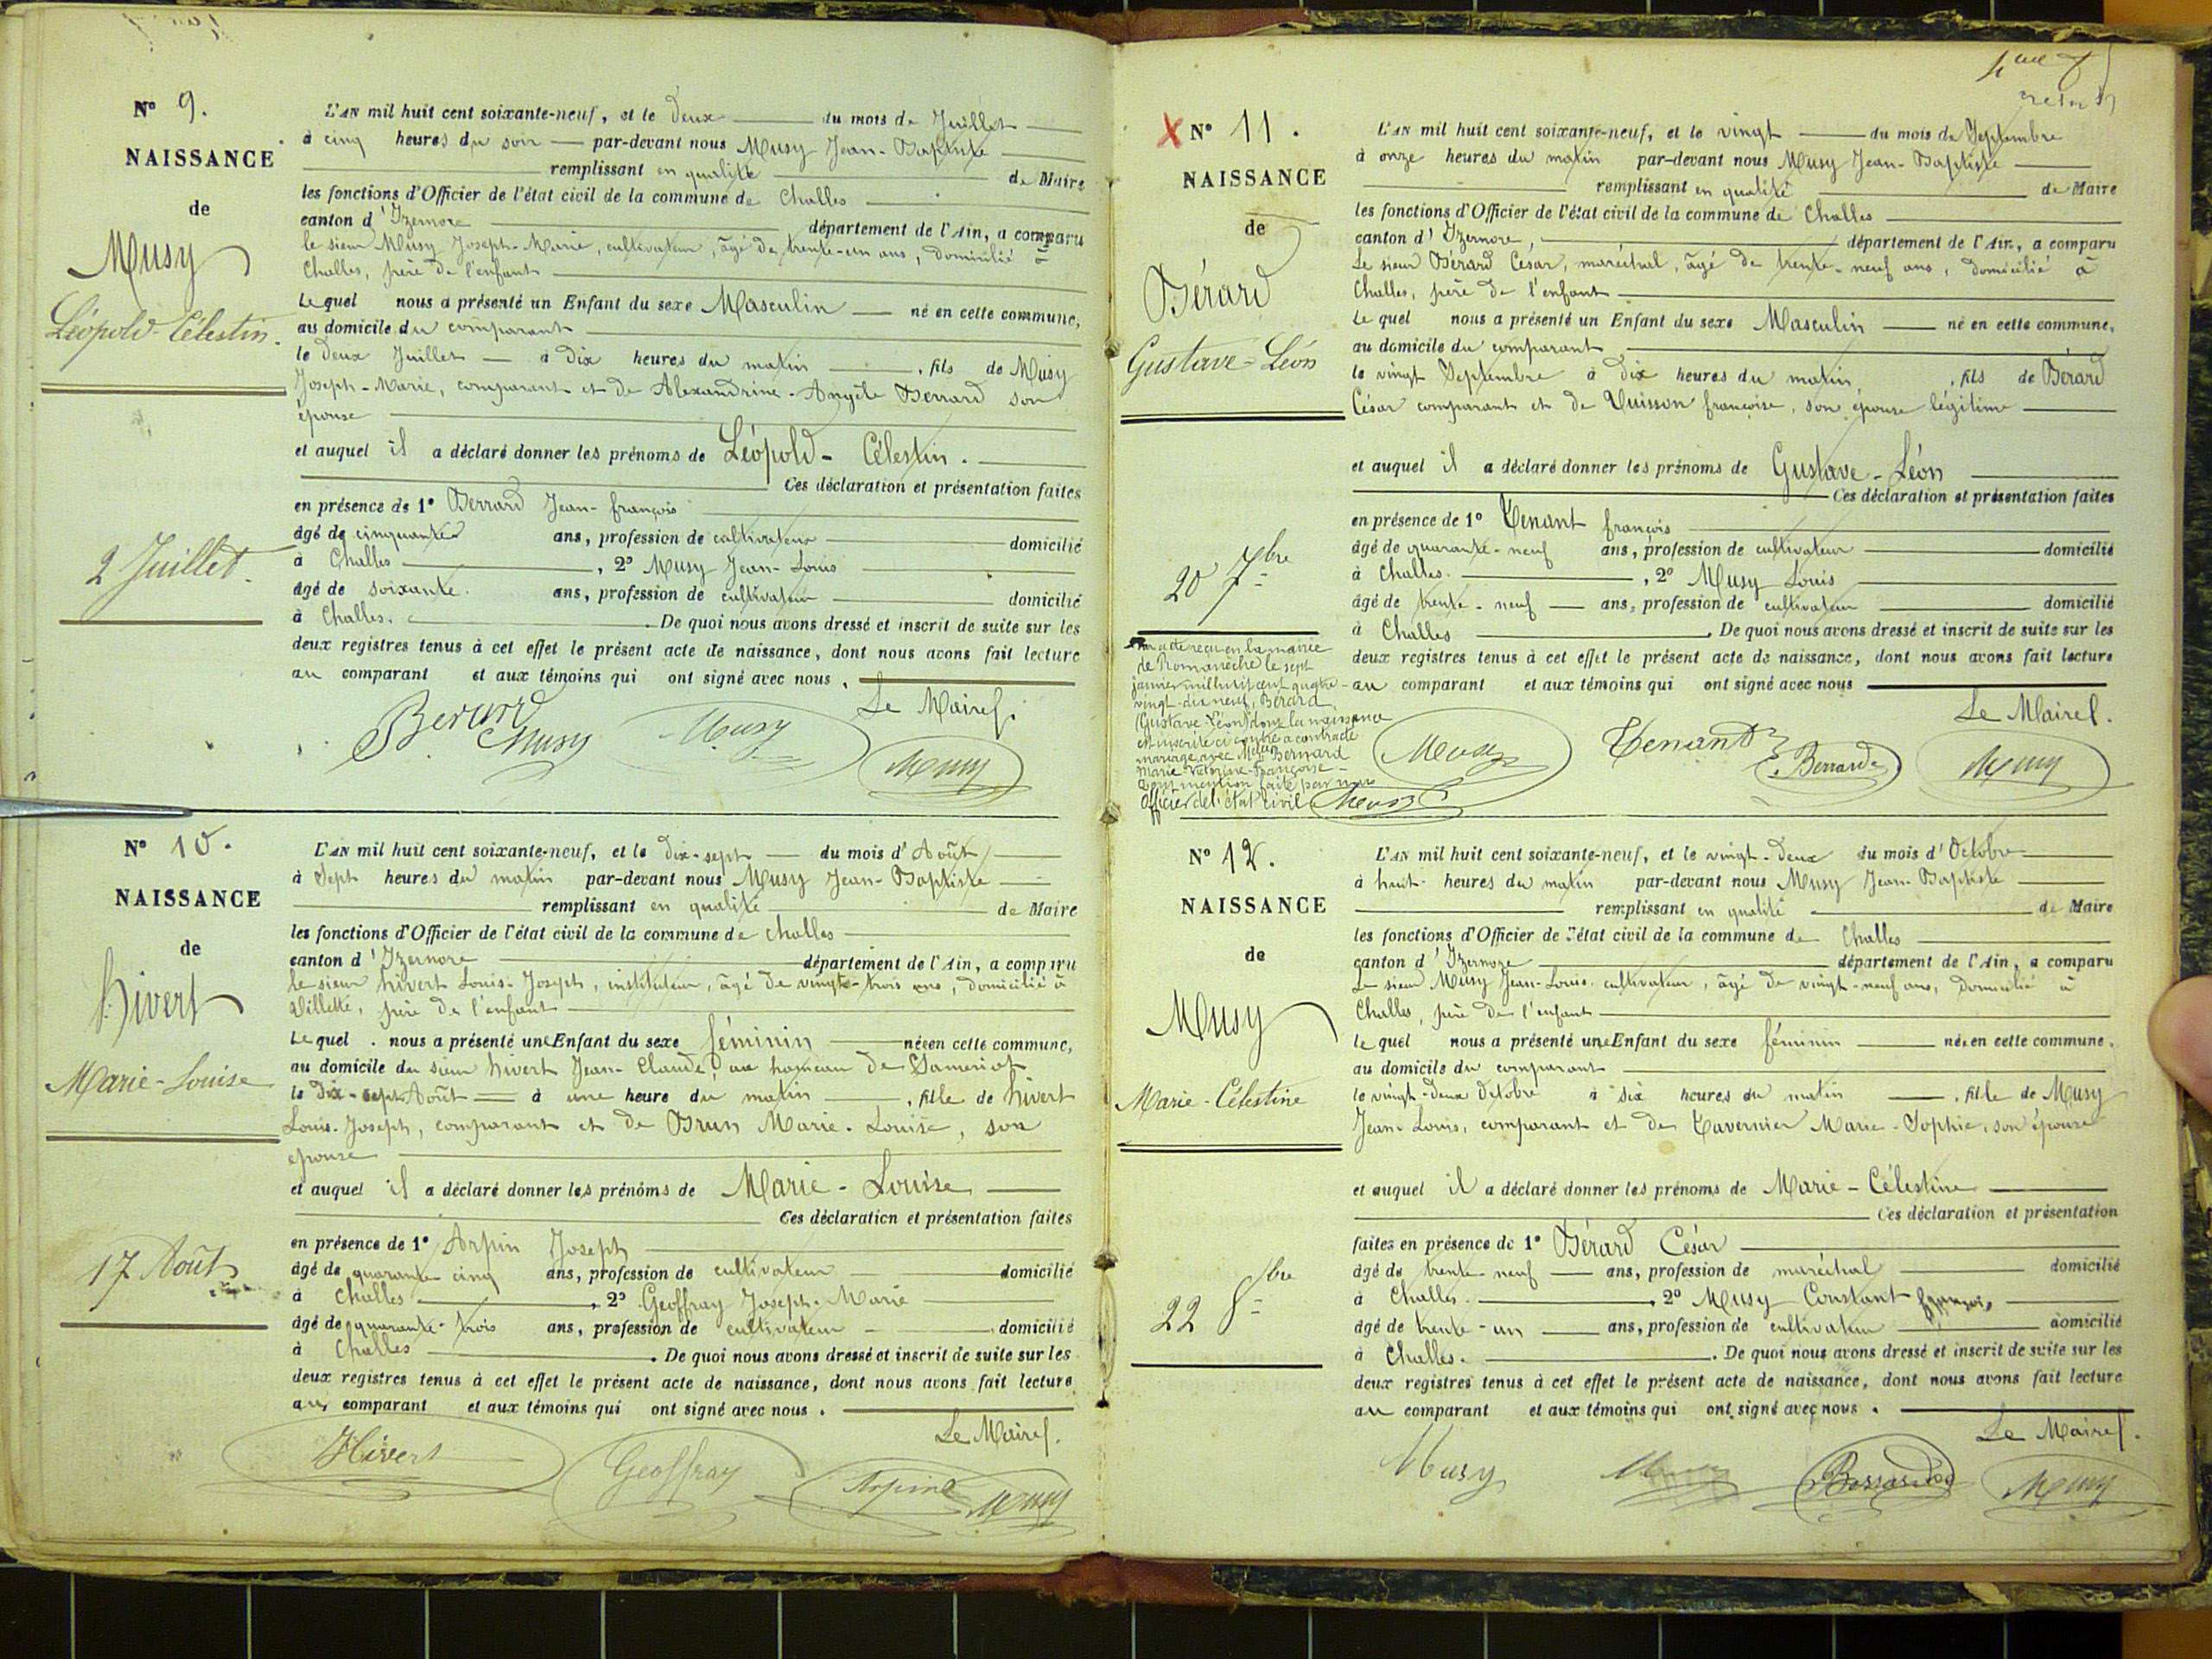 N° 9.
NAISSANCE
de
Musy
Léopold-Célestin.
2 Juillet.
L'AN mil huit cent soixante-neuf, et le deux du mois de Juillet
à cinq heures du soir par-devant nous Musy Jean-Baptiste
remplissant en qualité de Maire
les fonctions d'Officier de l'état civil de la commune de Challes
canton d'Izernore département de l'Ain, a comparu
le sieur Musy Joseph-Marie, cultivateur, âgé de trente-un ans, domicilié à
Challes, père de l'enfant
Lequel nous a présenté un Enfant du sexe Masculin né en cette commune,
au domicile du comparant
le deux Juillet à dix heures du matin, fils de Musy
Joseph-Marie, comparant et de Alexandrine-Angèle Berrard son
épouse
et auquel il a déclaré donner les prénoms de Léopold-Célestin.
Ces déclaration et présentation faites
en présence de 1° Berrard Jean-françois
âgé de cinquante ans, profession de cultivateur domicilié
à Challes, 2° Musy Jean-Louis
âgé de soixante. ans, profession de cultivateur domicilié
à Challes. De quoi nous avons dressé et inscrit de suite sur les
deux registres tenus à cet effet le présent acte de naissance, dont nous avons fait lecture
au comparant et aux témoins qui ont signé avec nous.
Le Maire.
Berard Musy Musy Musy
N° 10.
NAISSANCE
de
hivert
Marie-Louise
17 Août
L'AN mil huit cent soixante-neuf, et le dix-sept du mois d'Août
à Sept heures du matin par-devant nous Musy Jean-Baptiste
remplissant en qualité de Maire
les fonctions d'Officier de l'état civil de la commune de Challes
canton d'Izernore département de l'Ain, a comparu
le sieur hivert Louis-Joseph, instituteur, âgé de vingt-trois ans, domicilié à
Villette, père de l'enfant
Lequel nous a présenté une Enfant du sexe féminin née en cette commune,
au domicile du sieur hivert Jean-Claude, au hameau de
le dix-sept Août à une heure du matin, fille de hivert
Louis-Joseph, comparant et de Brun Marie-Louise, son
épouse
et auquel il a déclaré donner les prénoms de Marie-Louise
Ces déclaration et présentation faites
en présence de 1° Arpin Joseph
âgé de quarante cinq ans, profession de cultivateur domicilié
à Challes, 2° Geoffray Joseph-Marie
âgé de quarante-trois ans, profession de cultivateur domicilié
à Challes. De quoi nous avons dressé et inscrit de suite sur les
deux registres tenus à cet effet le présent acte de naissance, dont nous avons fait lecture
au comparant et aux témoins qui ont signé avec nous.
Le Maire.
Hivert Geoffray Arpin Musy
N° 11.
NAISSANCE
de
Bérard
Gustave-Léon
20 7bre
Par acte reçu en la mairie
de Romanèche le sept
janvier mil huit cent quatre-
vingt-dix neuf, Bérard
(Gustave Léon) dont la naissance
est inscrite ci contre a contracté
mariage avec Melle Bernard
Marie Victorine-Françoise
Dont mention faite par nous
Officier de l'état civil Musy
L'AN mil huit cent soixante-neuf, et le vingt du mois de Septembre
à onze heures du matin par-devant nous Musy Jean-Baptiste
remplissant en qualité de Maire
les fonctions d'Officier de l'état civil de la commune de Challes
canton d'Izernore, département de l'Ain, a comparu
Le sieur Bérard César, maréchal, âgé de trente-neuf ans, domicilié à
Challes, père de l'enfant
Lequel nous a présenté un Enfant du sexe Masculin né en cette commune,
au domicile du comparant
le vingt Septembre à dix heures du matin, fils de Bérard
César comparant et de Vuisson françoise, son épouse légitime
et auquel il a déclaré donner les prénoms de Gustave-Léon
Ces déclaration et présentation faites
en présence de 1° Tenant françois
âgé de quarante-neuf ans, profession de cultivateur domicilié
à Challes., 2° Musy Louis
âgé de trente-neuf ans, profession de cultivateur domicilié
à Challes. De quoi nous avons dressé et inscrit de suite sur les
deux registres tenus à cet effet le présent acte de naissance, dont nous avons fait lecture
au comparant et aux témoins qui ont signé avec nous
Le Maire.
Musy Tenant Berrard Musy
N° 12.
NAISSANCE
de
Musy
Marie-Célestine
22 8bre
L'AN mil huit cent soixante-neuf, et le vingt-deux du mois d'Octobre
à huit heures du matin par-devant nous Musy Jean-Baptiste
remplissant en qualité de Maire
les fonctions d'Officier de l'état civil de la commune de Challes
canton d'Izernore département de l'Ain, a comparu
Le sieur Musy Jean-Louis cultivateur, âgé de vingt-neuf ans, domicilié à
Challes, père de l'enfant
lequel nous a présenté une Enfant du sexe féminin née en cette commune,
au domicile du comparant
le vingt-deux Octobre à six heures du matin, fille de Musy
Jean-Louis, comparant et de Tavernier Marie-Sophie, son épouse
et auquel il a déclaré donner les prénoms de Marie-Célestine
Ces déclaration et présentation
faites en présence de 1° Bérard César
âgé de trente-neuf ans, profession de maréchal domicilié
à Challes., 2° Musy Constant françois
âgé de trente-un ans, profession de cultivateur domicilié
à Challes. De quoi nous avons dressé et inscrit de suite sur les
deux registres tenus à cet effet le présent acte de naissance, dont nous avons fait lecture
au comparant et aux témoins qui ont signé avec nous.
Le Maire.
Musy Berrard Musy